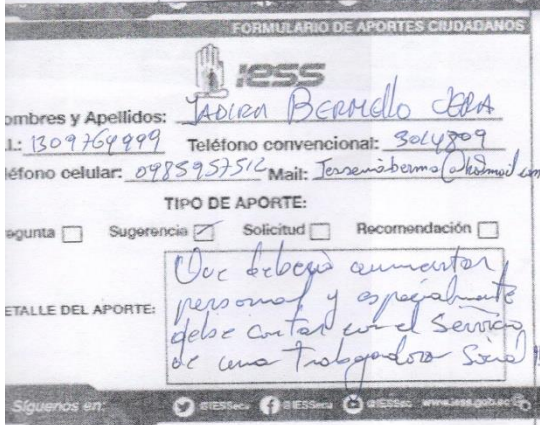 FORMULARIO DE APORTES CIUDADANOS
IESS
ombres y Apellidos: JADIRA BERMELLO
.I.: 1309769999 Teléfono convencional: 3014809
léfono celular: 0985957512 Mail:
TIPO DE APORTE:
egunta Sugerencia Solicitud Recomendación
Que debería aumentar
personal y especialmente
ETALLE DEL APORTE:
debe contar con el Servicio
de una Trabajadora Social
Síguenos en: @IESSecu @IESSecu @IESSec www.iess.gob.ec